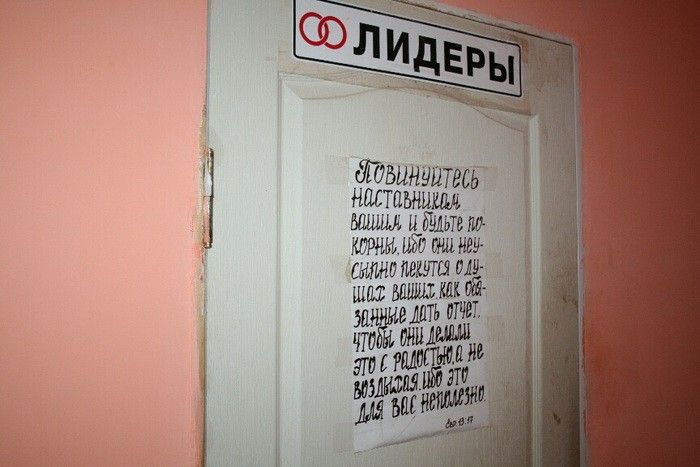 ЛИДЕРЫ
Повинуйтесь
наставникам
вашим и будьте по-
корны, ибо они неу-
сыпно пекутся о ду-
шах ваших, как обя-
занные дать отчет,
чтобы они делали
это с радостью, а не
воздыхая, ибо это
для вас неполезно.
Евр. 13:17